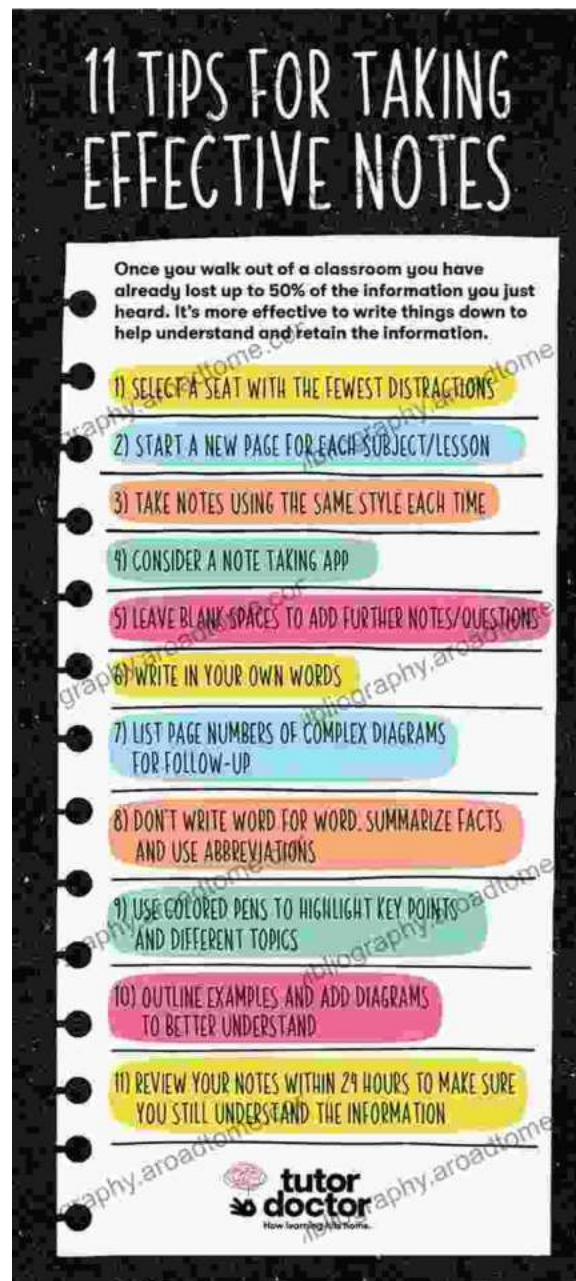 11 TIPS FOR TAKING
EFFECTIVE NOTES
Once you walk out of a classroom you have
already lost up to 50% of the information you just
heard. It's more effective to write things down to
help understand and retain the information.
1) SELECT A SEAT WITH THE FEWEST DISTRACTIONS
2) START A NEW PAGE FOR EACH SUBJECT/LESSON
3) TAKE NOTES USING THE SAME STYLE EACH TIME
4) CONSIDER A NOTE TAKING APP
5) LEAVE BLANK SPACES TO ADD FURTHER NOTES/QUESTIONS
6) WRITE IN YOUR OWN WORDS
7) LIST PAGE NUMBERS OF COMPLEX DIAGRAMS
FOR FOLLOW-UP
8) DON'T WRITE WORD FOR WORD. SUMMARIZE FACTS
AND USE ABBREVIATIONS
9) USE COLORED PENS TO HIGHLIGHT KEY POINTS
AND DIFFERENT TOPICS
10) OUTLINE EXAMPLES AND ADD DIAGRAMS
TO BETTER UNDERSTAND
11) REVIEW YOUR NOTES WITHIN 24 HOURS TO MAKE SURE
YOU STILL UNDERSTAND THE INFORMATION
tutor
doctor
How learning hits home.